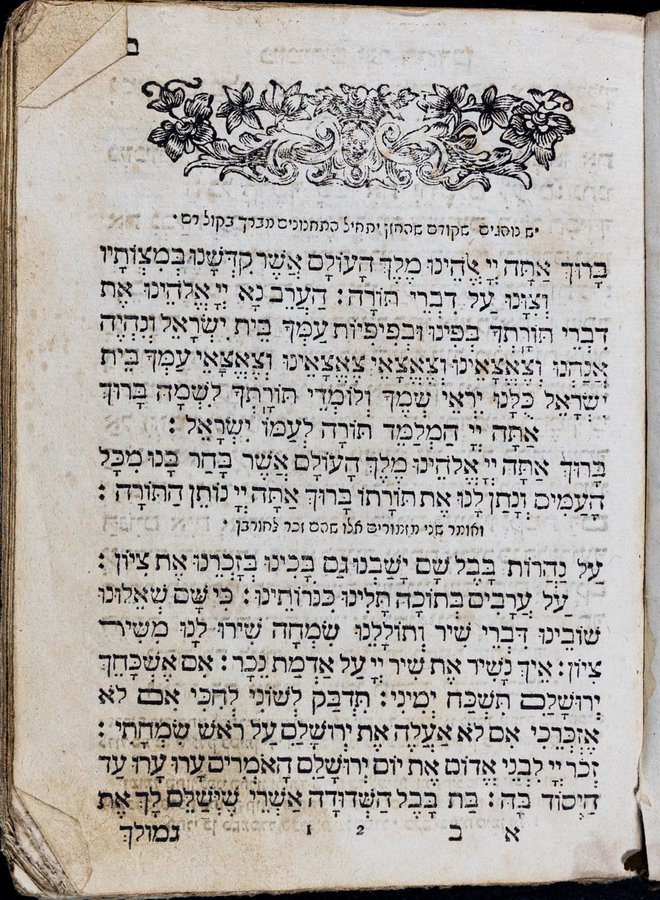 ב
יש נוהגים שקודם שהחזן יתחיל התחנונים מברך בקול רם ·
בָּרוּךְ אַתָּה יְיָ אֱלֹהֵינוּ מֶלֶךְ הָעוֹלָם אֲשֶׁר קִדְּשָׁנוּ בְּמִצְוֹתָיו
וְצִוָּנוּ עַל דִּבְרֵי תוֹרָה : הַעֲרֵב נָא יְיָ אֱלֹהֵינוּ אֶת
דִּבְרֵי תוֹרָתְךָ בְּפִינוּ וּבְפִיפִיּוֹת עַמְּךָ בֵּית יִשְׂרָאֵל וְנִהְיֶה
אֲנַחְנוּ וְצֶאֱצָאֵינוּ וְצֶאֱצָאֵי צֶאֱצָאֵינוּ וְצֶאֱצָאֵי עַמְּךָ בֵּית
יִשְׂרָאֵל כֻּלָּנוּ יֹרְאֵי שְׁמֶךָ וְלוֹמְדֵי תוֹרָתְךָ לִשְׁמָהּ בָּרוּךְ
אַתָּה יְיָ הַמְלַמֵּד תּוֹרָה לְעַמּוֹ יִשְׂרָאֵל :
בָּרוּךְ אַתָּה יְיָ אֱלֹהֵינוּ מֶלֶךְ הָעוֹלָם אֲשֶׁר בָּחַר בָּנוּ מִכָּל
הָעַמִּים וְנָתַן לָנוּ אֶת תּוֹרָתוֹ בָּרוּךְ אַתָּה יְיָ נוֹתֵן הַתּוֹרָה :
ואומר שני מזמורים אלו שהם זכר לחורבן ·
עַל נַהֲרוֹת בָּבֶל שָׁם יָשַׁבְנוּ גַּם בָּכִינוּ בְּזָכְרֵנוּ אֶת צִיּוֹן :
עַל עֲרָבִים בְּתוֹכָהּ תָּלִינוּ כִּנּרוֹתֵינוּ : כִּי שָׁם שְׁאֵלוּנוּ
שׁוֹבֵינוּ דִּבְרֵי שִׁיר וְתוֹלָלֵנוּ שִׂמְחָה שִׁירוּ לָנוּ מִשִּׁיר
צִיּוֹן : אֵיךְ נָשִׁיר אֶת שִׁיר יְיָ עַל אַדְמַת נֵכָר : אִם אֶשְׁכָּחֵךְ
יְרוּשָׁלַםִ תִּשְׁכַּח יְמִינִי : תִּדְבַּק לְשׁוֹנִי לְחִכִּי אִם לֹא
אֶזְכְּרֵכִי אִם לֹא אַעֲלֶה אֶת יְרוּשָׁלַםִ עַל רֹאשׁ שִׂמְחָתִי :
זְכֹר יְיָ לִבְנֵי אֱדוֹם אֶת יוֹם יְרוּשָׁלָםִ הָאֹמְרִים עָרוּ עָרוּ עַד
הַיְסוֹד בָּהּ : בַּת בָּבֶל הַשְּׁדוּדָה אַשְׁרֵי שֶׁיְשַׁלֶּם לָךְ אֶת
א ב 2 1 גמולך